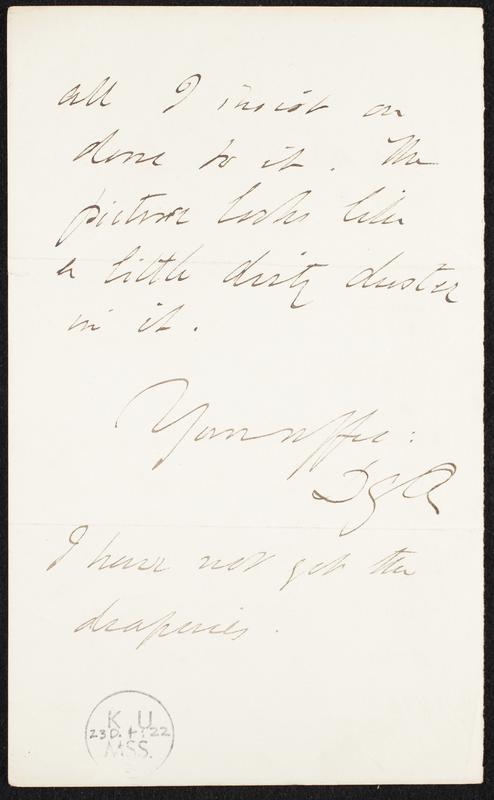 all I insist on
done to it. The
picture looks like
a little dirty duster
in it.
Your affec:
DGR
I have not got the
draperies.
K U
23D.4:22
MSS.